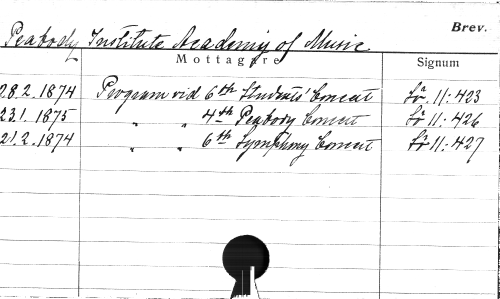 Brev.
Peabody Institute Academy of Music.
Mottagare Signum
28.2.1874 Program vid 6th Students' Concert 11:423
23.1.1875 " " 4th Peabody Concert 11:426
21.2.1874 " " 6th Symphony Concert 11:427